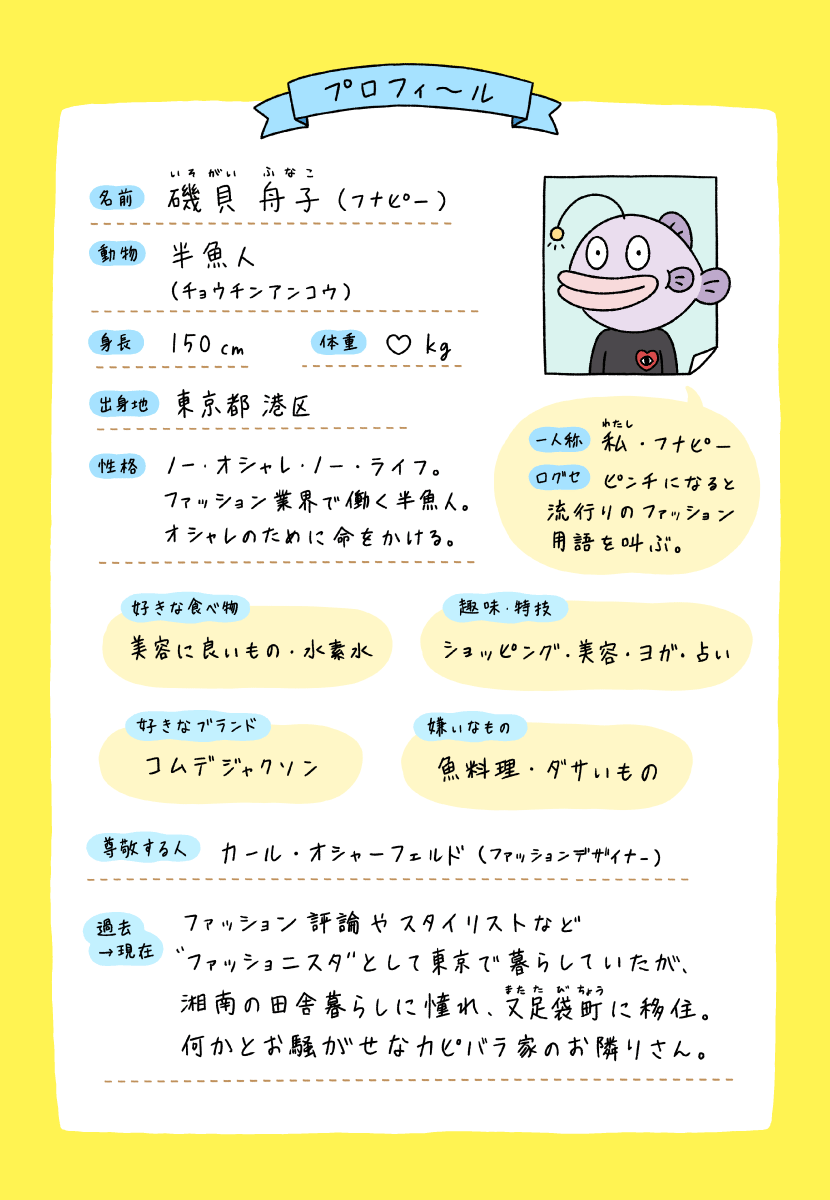 プロフィ〜ル
名前 磯貝 舟子(フナピー)
いそがい ふなこ
動物 半魚人
(チョウチンアンコウ)
身長 150cm 体重 ♡kg
出身地 東京都港区
性格 ノー・オシャレ・ノー・ライフ。
ファッション業界で働く半魚人。
オシャレのために命をかける。
一人称 私・フナピー
わたし
口グセ ピンチになると
流行りのファッション
用語を叫ぶ。
好きな食べ物
美容に良いもの・水素水
趣味・特技
ショッピング・美容・ヨガ・占い
好きなブランド
コムデジャクソン
嫌いなもの
魚料理・ダサいもの
尊敬する人 カール・オシャーフェルド(ファッションデザイナー)
過去
→現在
ファッション評論やスタイリストなど
"ファッショニスタ"として東京で暮らしていたが、
湘南の田舎暮らしに憧れ、又足袋町に移住。
またたびちょう
何かとお騒がせなカピバラ家のお隣りさん。